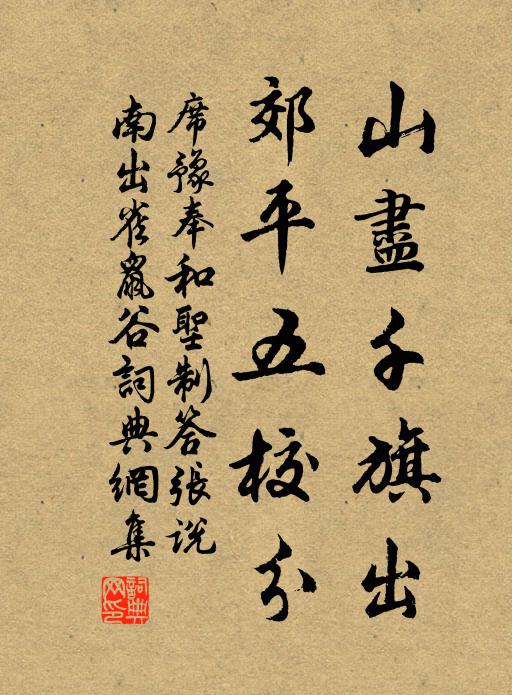 山盡千旗出
郊平五校分
席豫奉和聖制答張説
南出雀鼠谷詞典網集
詞典網印